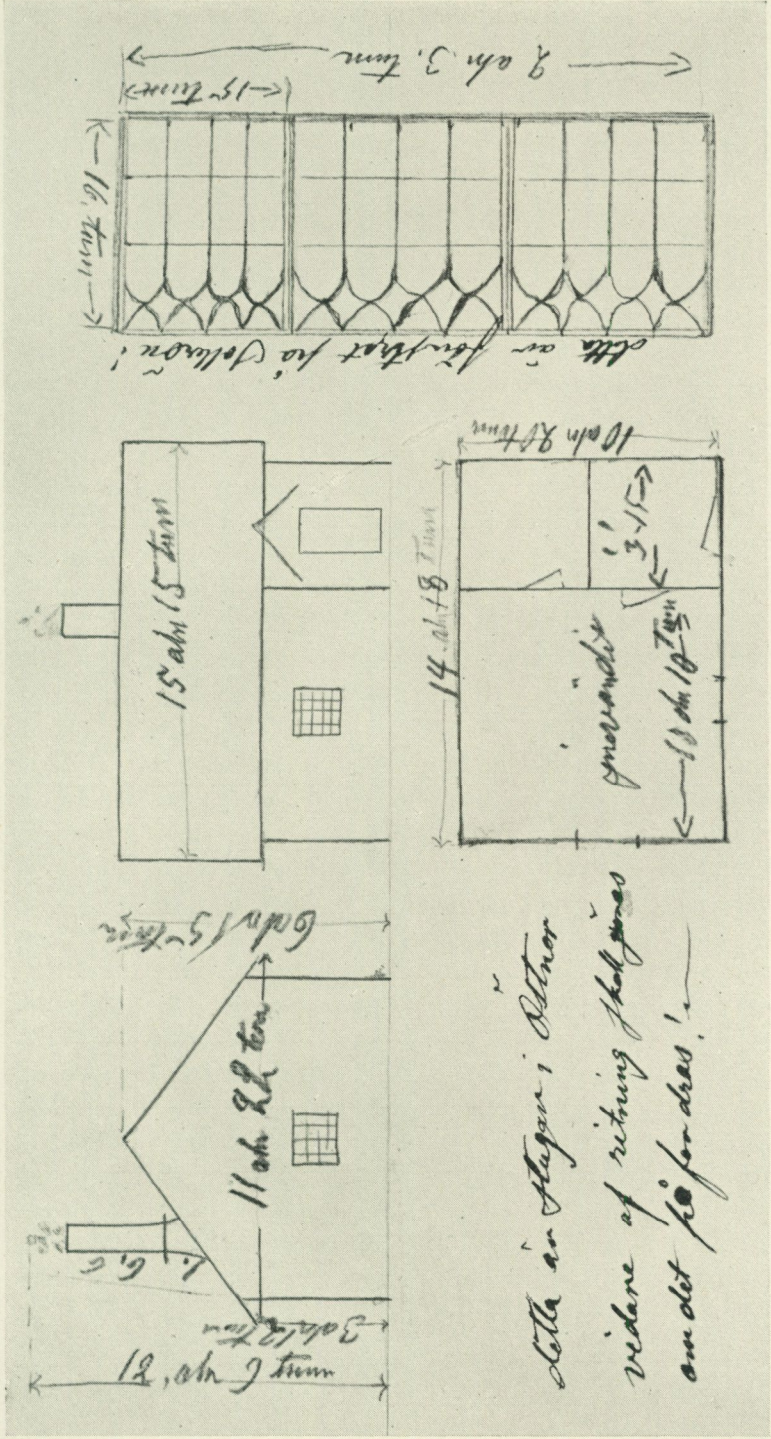 2 aln 3. tum
15 tum
16. tum
detta är fönstret på Solleron!
15 aln 15 tum
10 aln 20 tum
14 aln 18 tum
3-15
invändit
10 aln 18 tum
6 aln 15 tum
11 aln 22 tum
3 aln 12 tum
6 tum
detta är stugan i Östnor
vidare af ritning skall
om det på fordras!